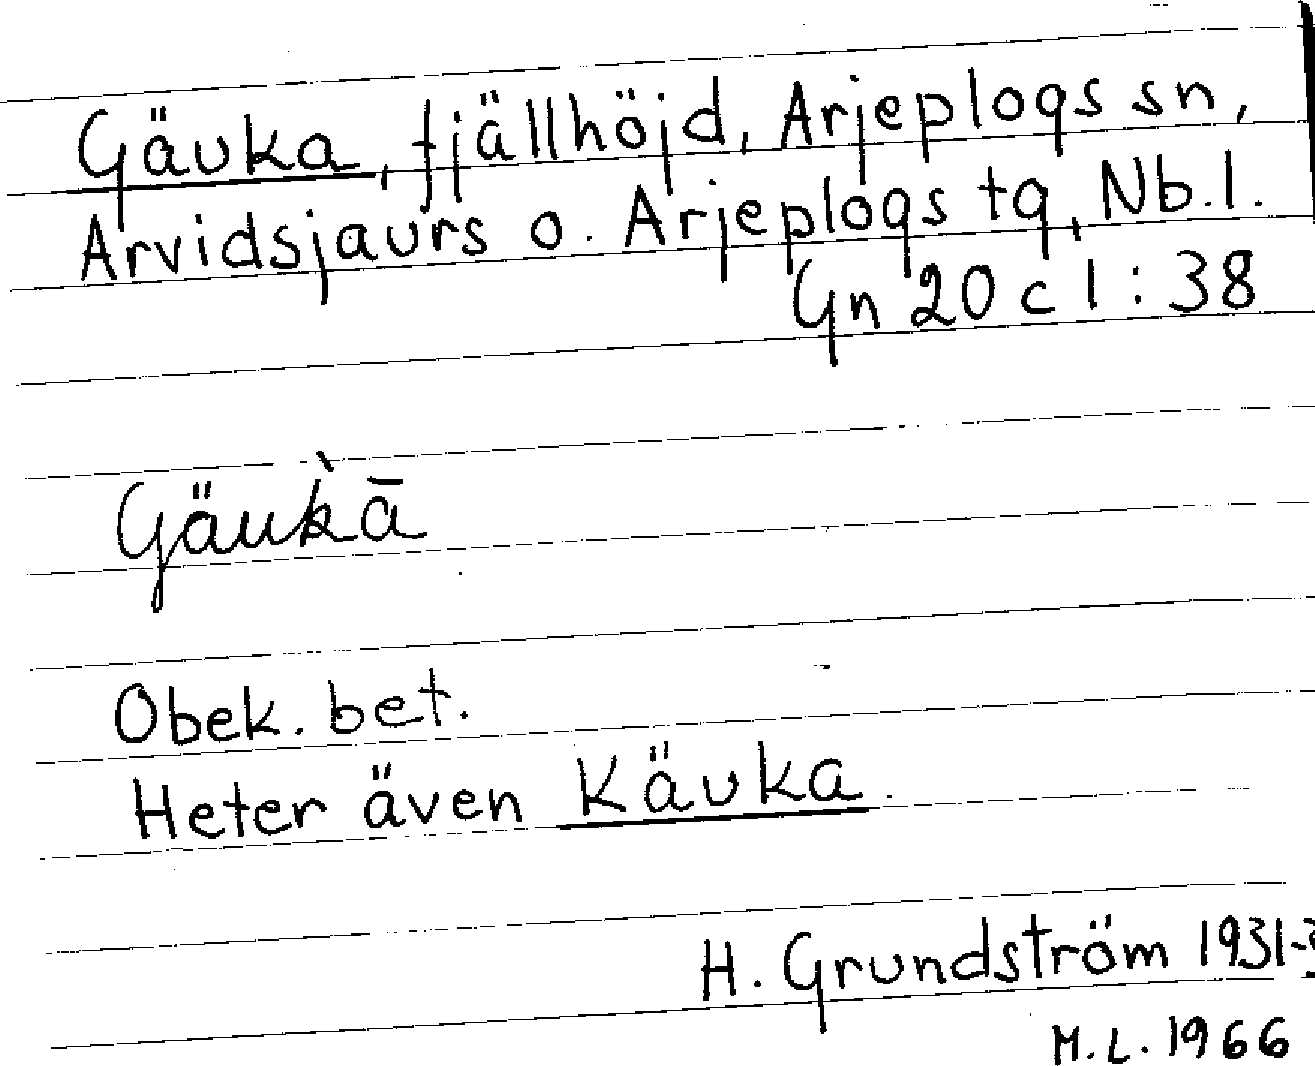 Gäuka, fjällhöjd, Arjeplogs sn,
Arvidsjaurs o. Arjeplogs tg, Nb.l.
Gn 20 c 1:38
Gäuk̀ā
Obek. bet.
Heter även Käuka.
H. Grundström 1931-3
M.L. 1966